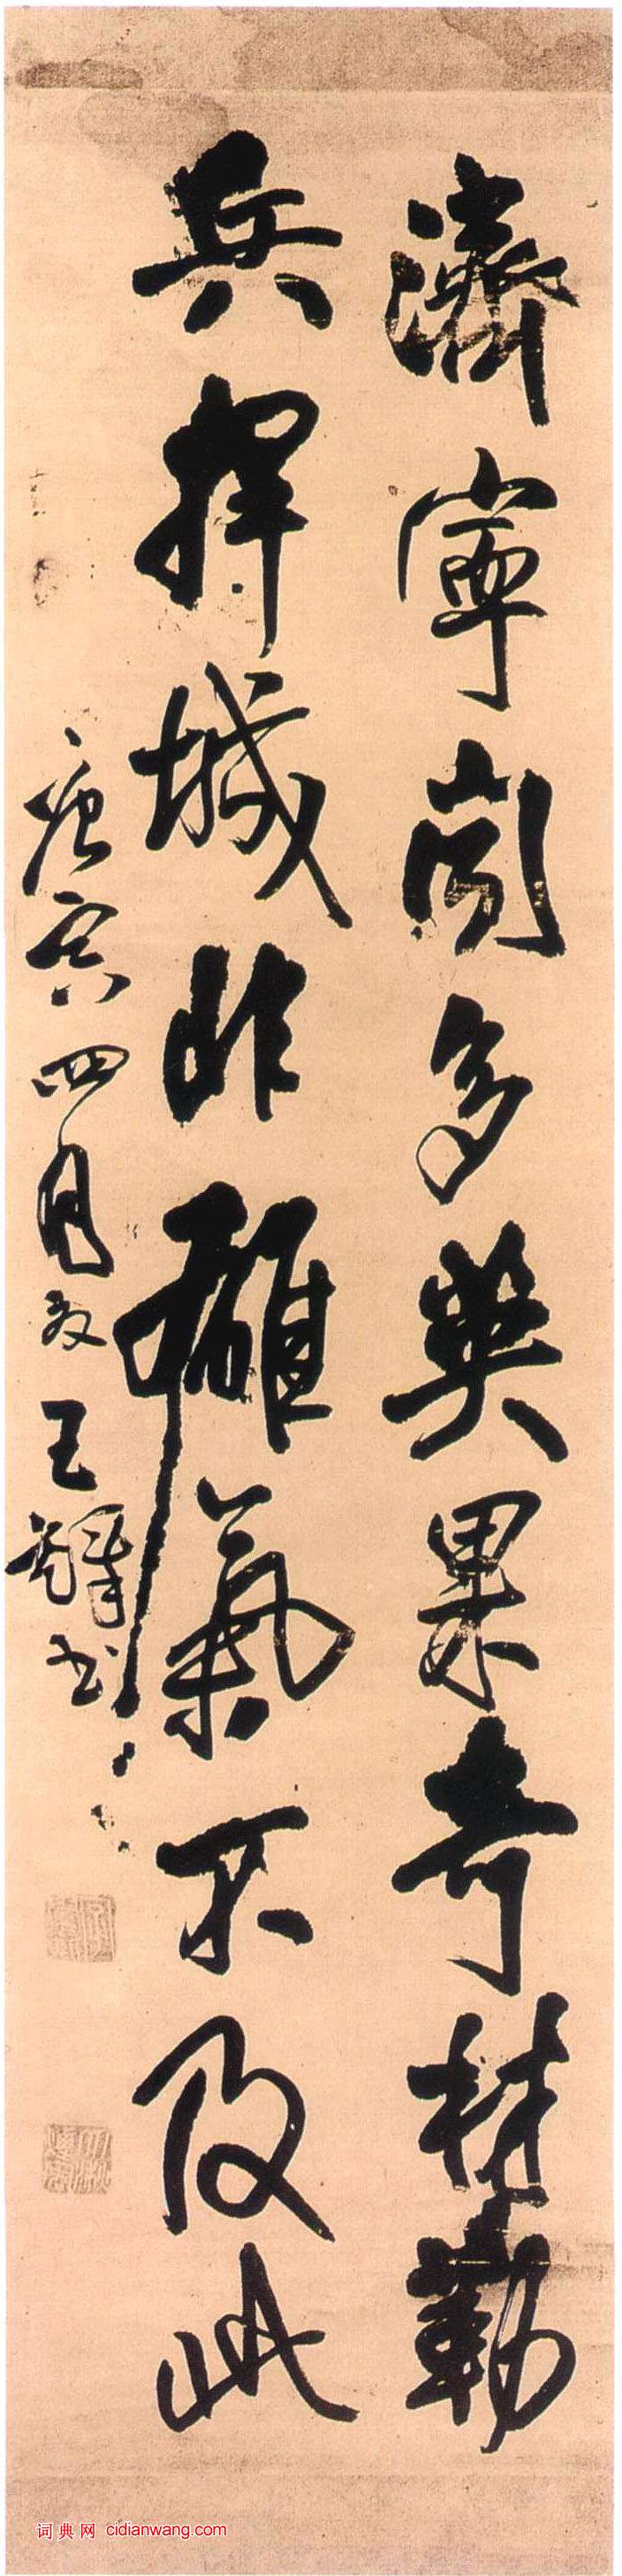 濟寧間多異果奇材勒
兵捍城非雄氣不及此
庚寅四月 王鐸書
词典网 cidianwang.com